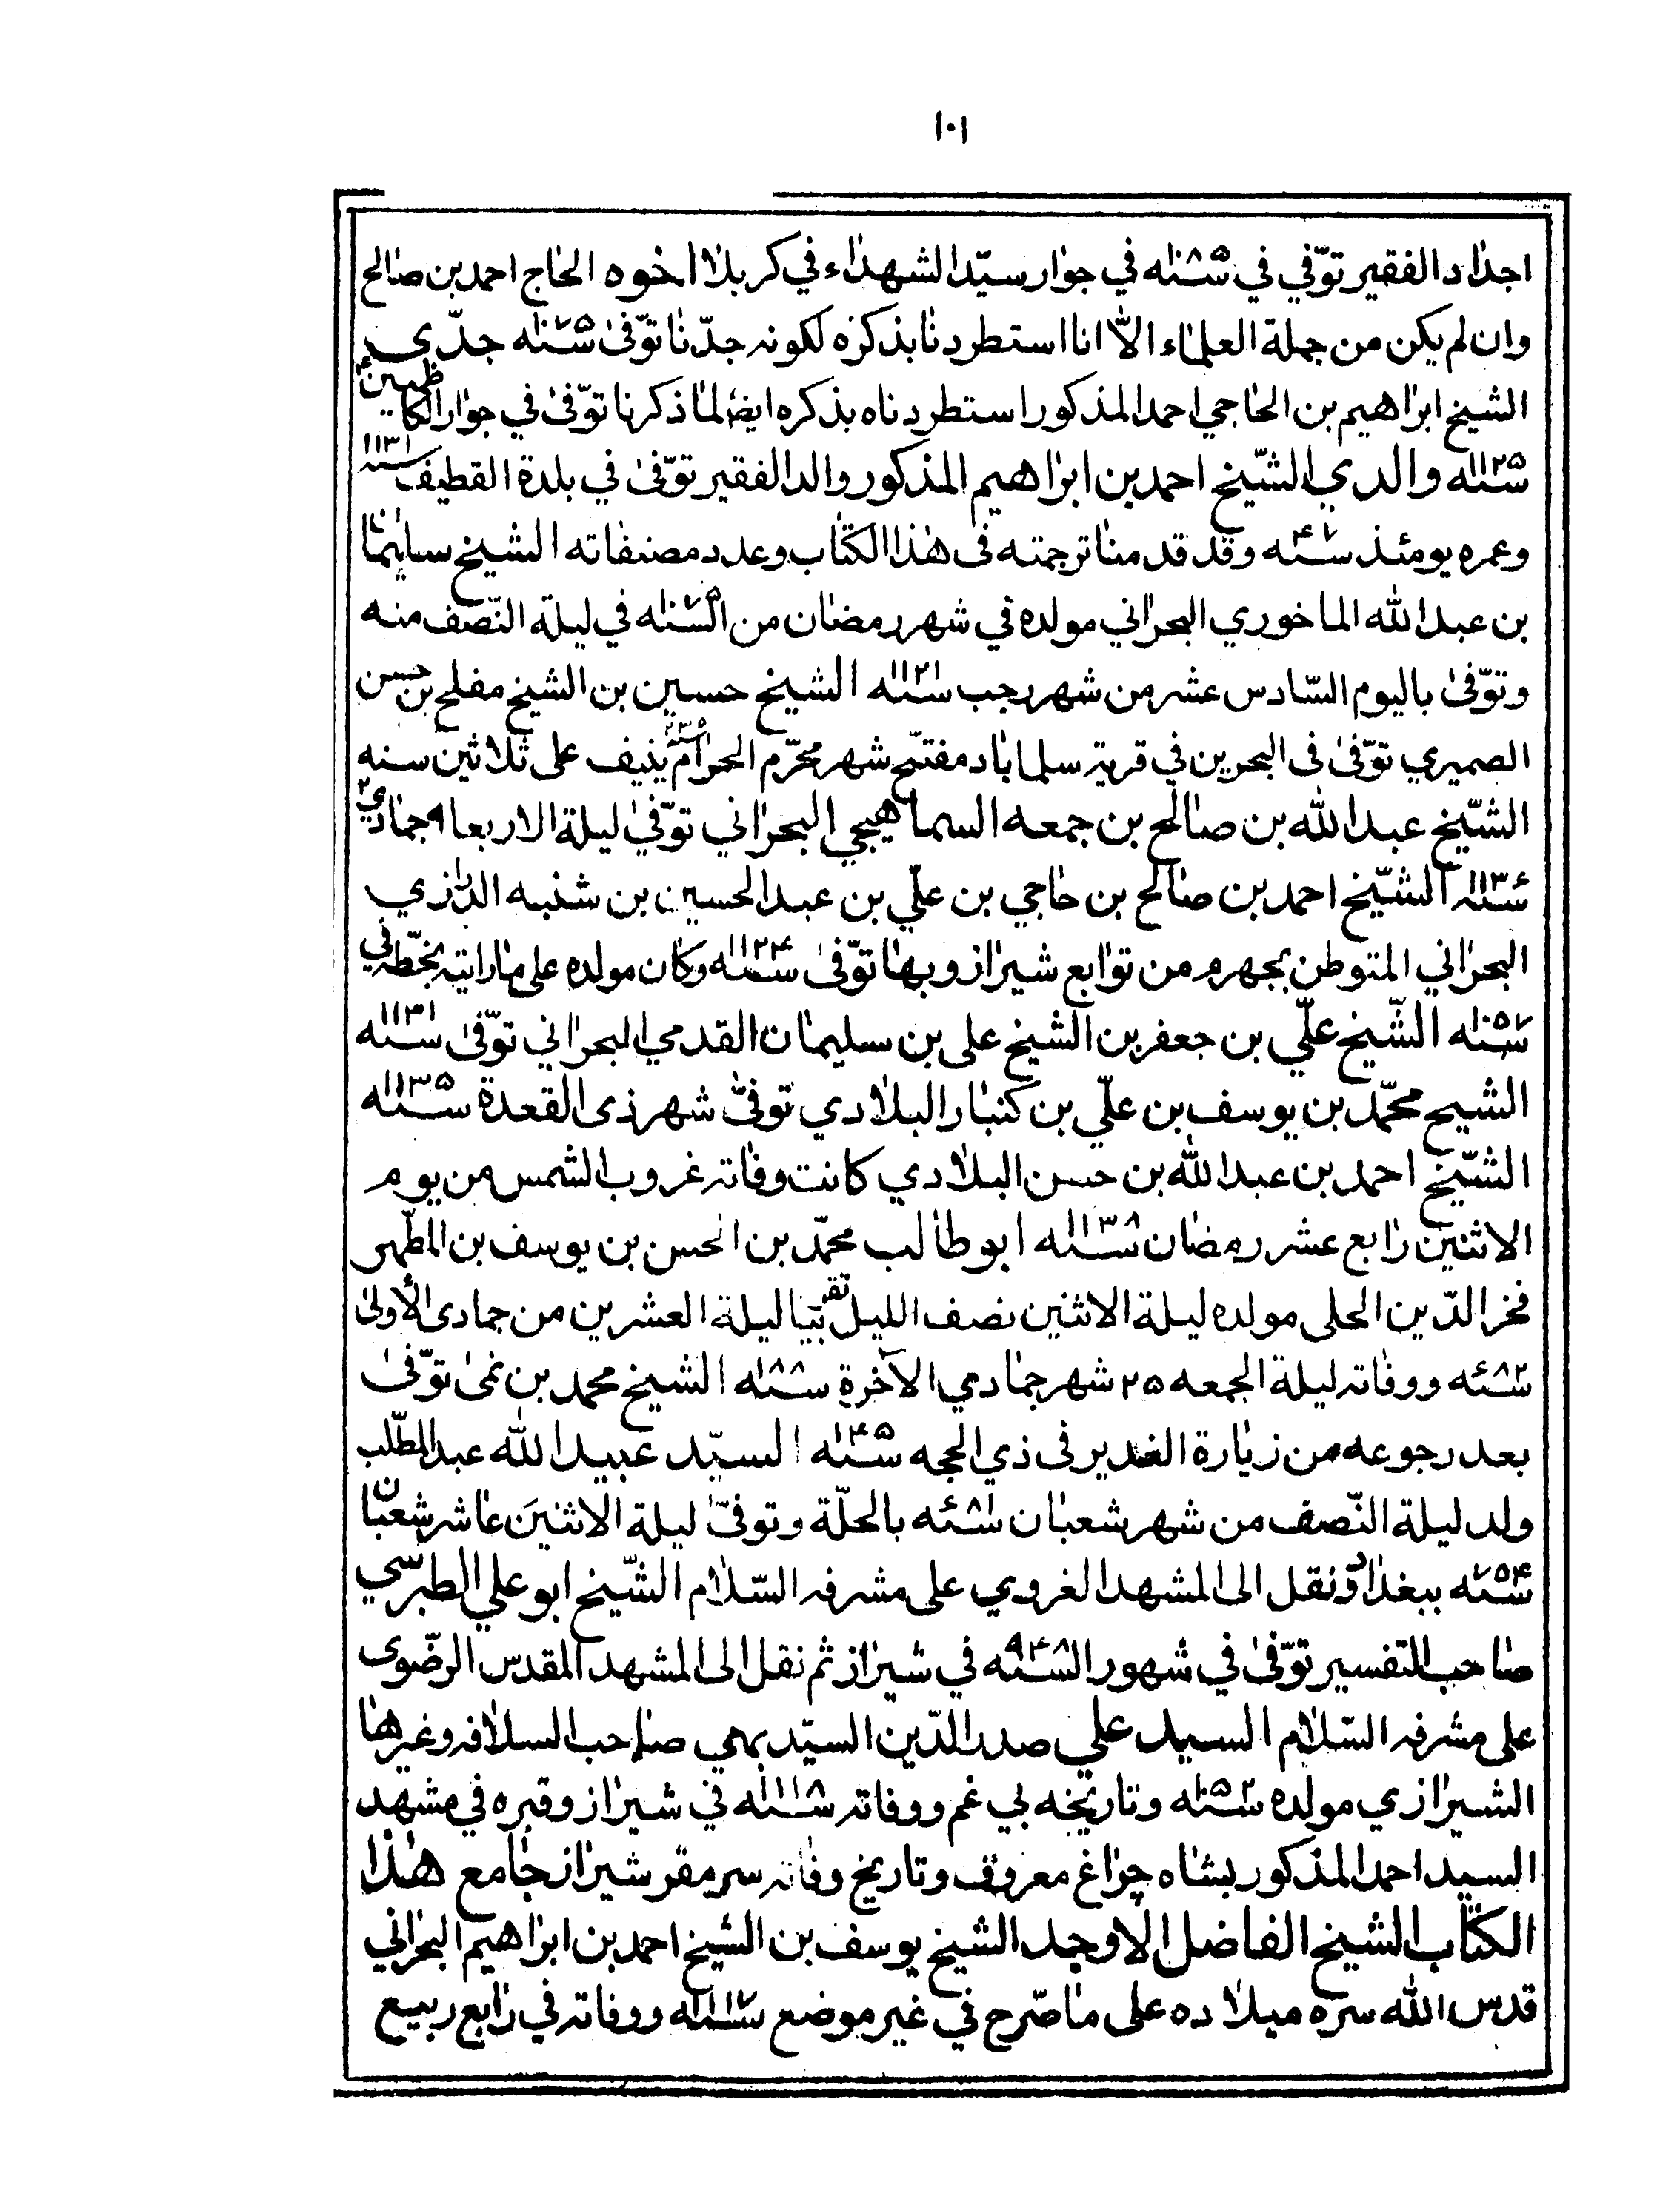 ١٠١
اجداد الفقير توّفي في سنه ١٠٨٥ في جوار سيّد الشهداء في كربلا اخوه الحاج احمد بن صالح
وان لم يكن من جملة العلماء الاّ انا استطردنا بذكره لكونه جدّنا توّفى سنه ١٠٧٥ جدّي
الشيخ ابراهيم بن الحاجي احمد المذكور استطردناه بذكره ايضا لما ذكرنا توّفى في جوار الكاظمين ع
سنه ١١٢٥ والدي الشّيخ احمد بن ابراهيم المذكور والد الفقير توّفى في بلدة القطيف سنه ١١٣١
وعمره يومئذ سنه ٤٧ وقد قدمنا ترجمته فى هذا الكتاب وعدد مصنفاته الشيخ سليمان
بن عبد الله الماخوري البحراني مولده في شهر رمضان من السنه ١٠٧٥ في ليلة النّصف منه
وتوّفى باليوم السّادس عشر من شهر رجب سنه ١١٢١ الشيخ حسين بن الشيخ مفلح بن حسن
الصميري توّفى فى البحرين في قرية سلماباد مفتتح شهر محرّم الحرام ينيف على ثلاثين سنه
الشّيخ عبد الله بن صالح بن جمعه السماهيجي البحراني توّفى ليلة الاربعا ٩ جمادي ٢
سنه ١١٣٤ الشّيخ احمد بن صالح بن حاجي بن علّي بن عبد الحسين بن شنبه الدرازي
البحراني المتوطن بجهرم من توابع شيراز وبها توّفى سنه ١١٢٤ وكان مولده على ما رايته بخطّه في
سنه ١٠٥٧ الشّيخ علّي بن جعفر بن الشيخ على بن سليمان القدمي البحراني توّفى سنه ١١٣١
الشيخ محمّد بن يوسف بن علّي بن كنبار البلادي توفىّ شهر ذى القعدة سنه ١١٣٥
الشّيخ احمد بن عبد الله بن حسن البلادي كانت وفاته غروب الشمس من يوم
الاثنين رابع عشر رمضان سنه ١١٣٨ ابو طالب محمّد بن الحسن بن يوسف بن المطّهر
فخر الدّين الحلى مولده ليلة الاثنين نصف الليل تقريبا ليلة العشرين من جمادى الأولى
سنه ٦٨٢ ووفاته ليلة الجمعه ٢٥ شهر جمادي الآخرة سنه ١٠٨٨ الشيخ محمد بن نمى توّفى
بعد رجوعه من زيارة الغدير فى ذي الحجه سنه ٦٤٥ السيّد عبيد الله عبد المطّلب
ولد ليلة النّصف من شهر شعبان سنه ٦٨١ بالحلّة وتوفىّ ليلة الاثنين عاشر شعبان
سنه ٧٥٤ ببغداد ونقل الى المشهد الغروي على مشرفه السّلام الشّيخ ابو علي الطبرسي
صاحب التفسير توّفى في شهور السنه ٩٤٨ في شيراز ثم نقل الى المشهد المقدس الرضّوى
على مشرفه السّلام السيد علي صدر الدّين السيّد بهي صاحب السلافه وغيرها
الشيرازي مولده سنه ١٠٥٢ وتاريخه بي غم ووفاته سنه ١١١٨ في شيراز وقبره في مشهد
السيد احمد المذكور بشاه چراغ معروف وتاريخ وفاته سر مقر شيراز جامع هذا
الكتاب الشيخ الفاضل الاوحد الشيخ يوسف بن الشيخ احمد بن ابراهيم البحراني
قدس الله سره ميلاده على ما صّرح في غير موضع سنه ١١٠٧ ووفاته في رابع ربيع